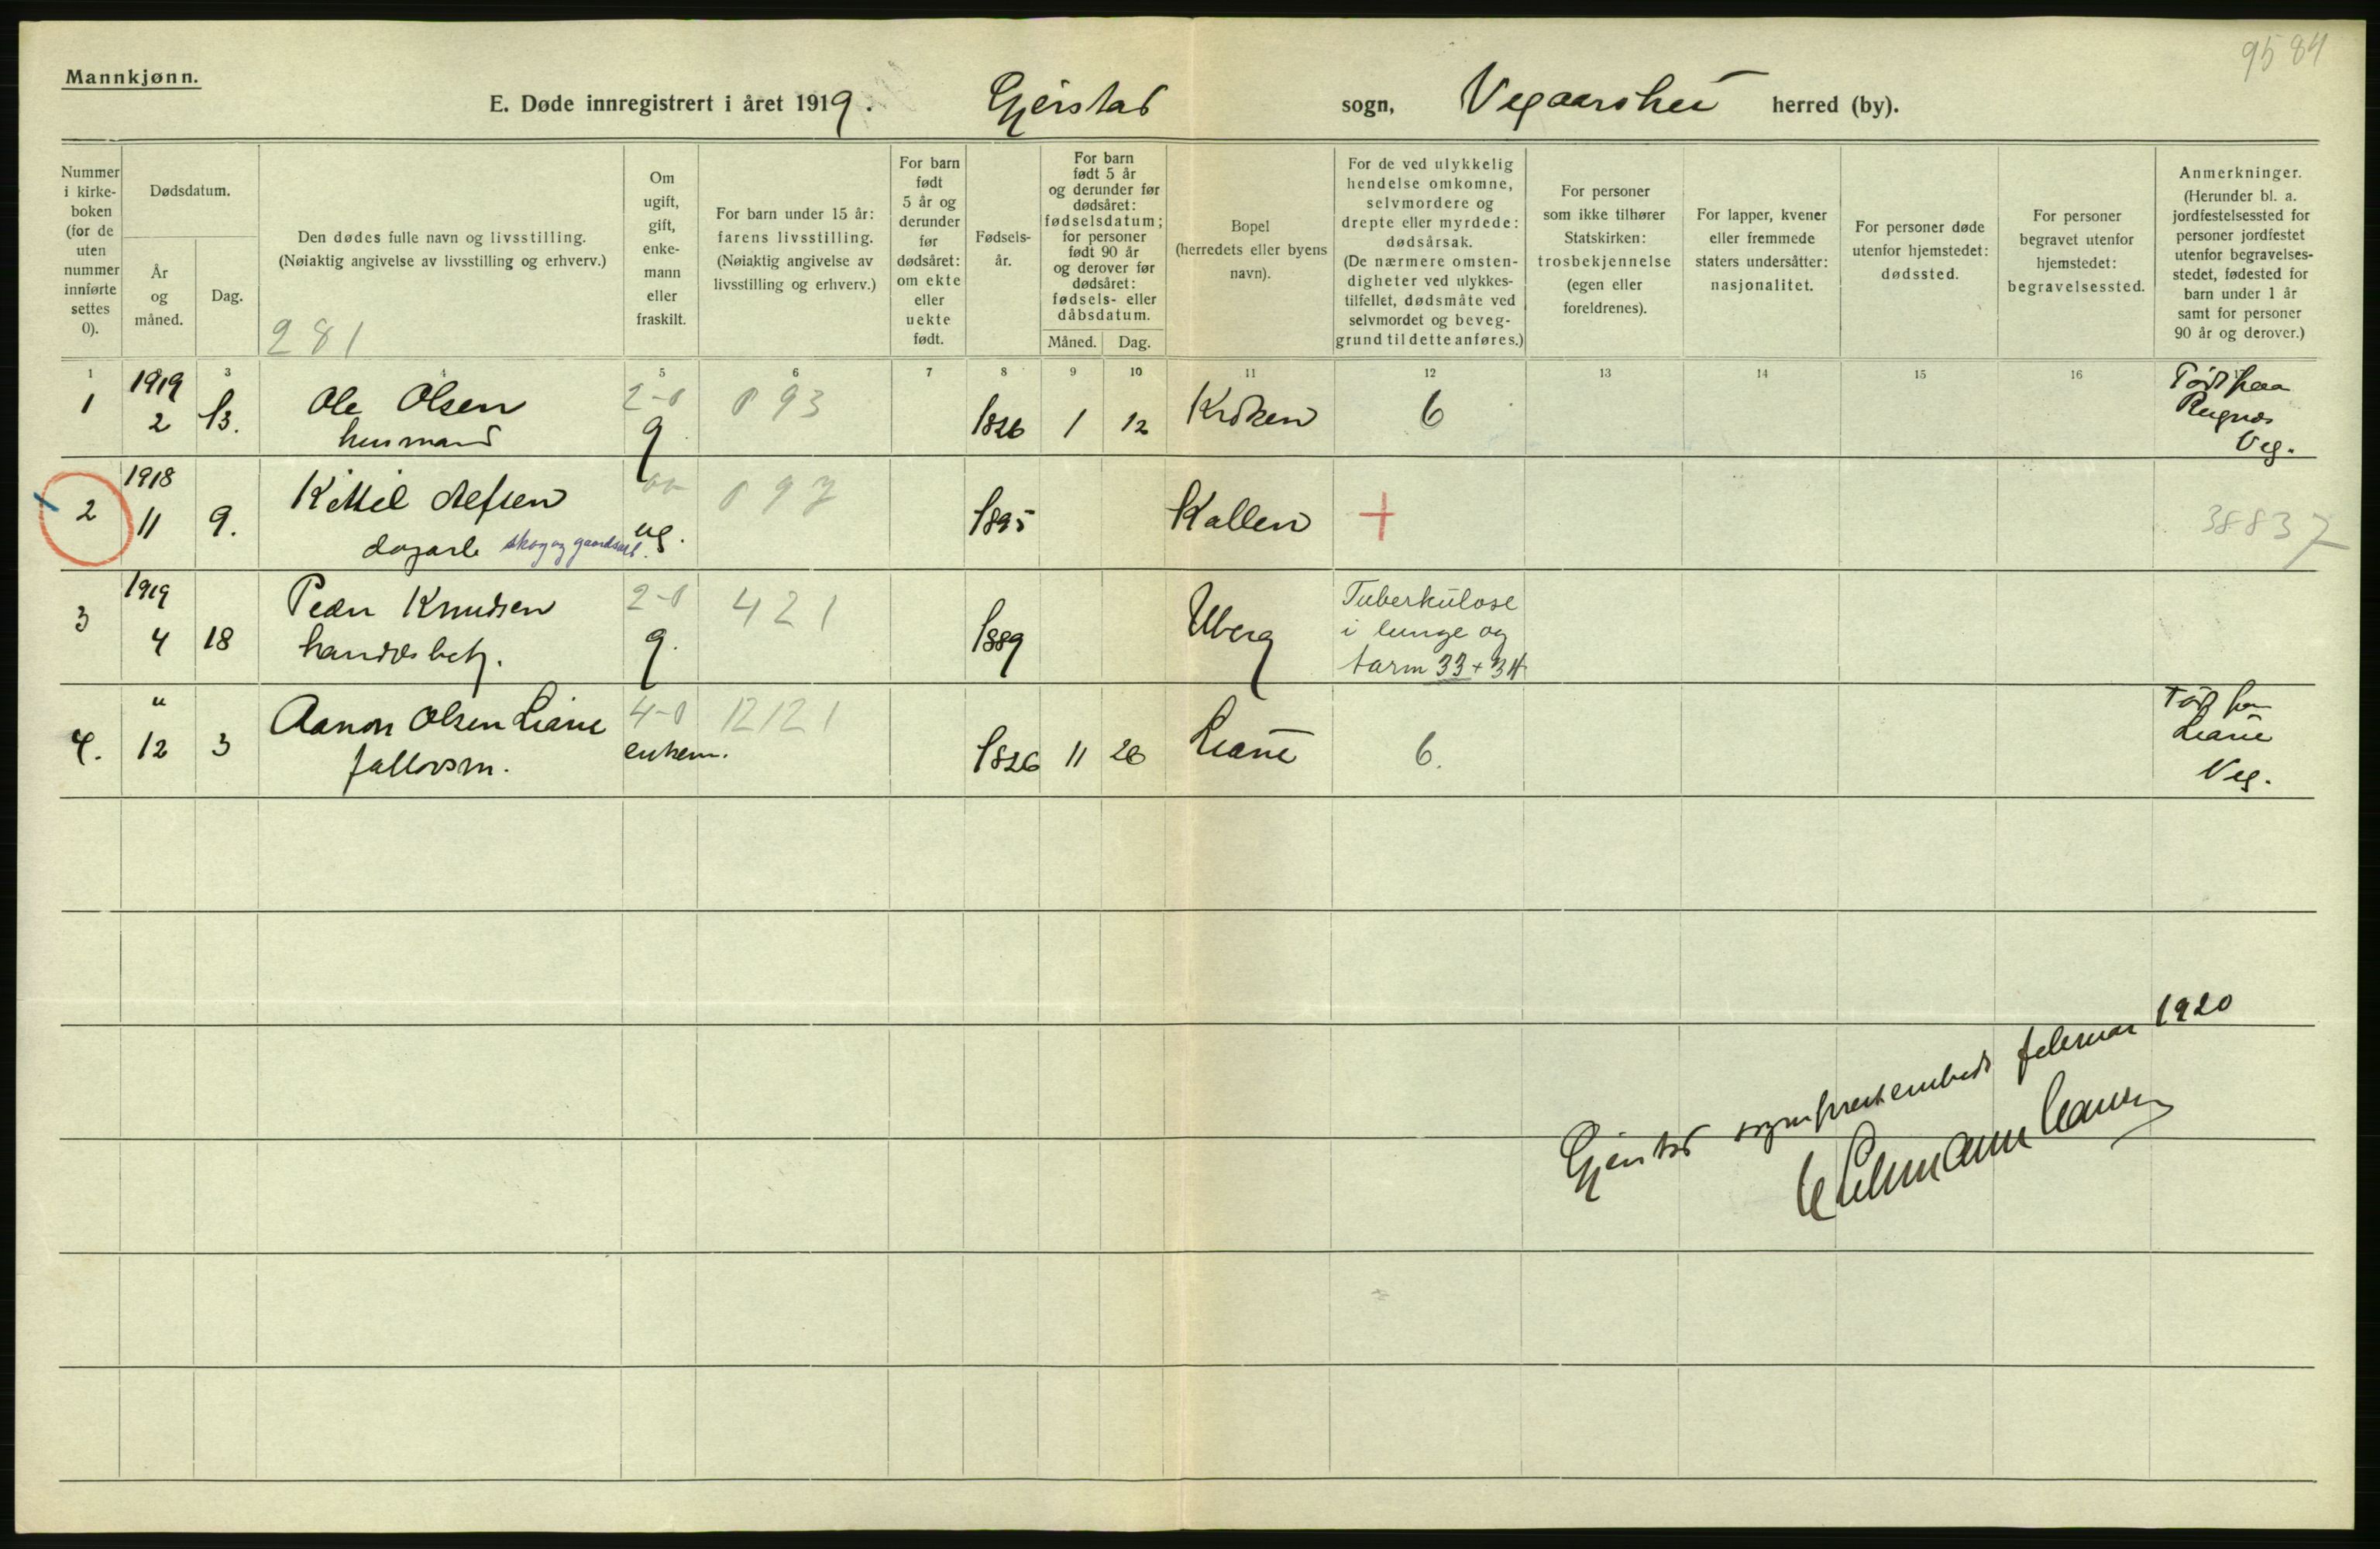 9584
Mannkjønn.
E. Døde innregistrert i året 1919. Gjerstad sogn, Vegaarshei herred (by).
Nummer i kirke-boken (for de uten nummer innførte settes 0).
Dødsdatum.
År og måned.
Dag.
Den dødes fulle navn og livsstilling.
(Nøiaktig angivelse av livsstilling og erhverv.)
281
Om ugift, gift, enke-mann eller fraskilt.
For barn under 15 år: farens livsstilling. (Nøiaktig angivelse av livsstilling og erhverv.)
For barn født 5 år og derunder før dødsåret: om ekte eller uekte født.
Fødsels-år.
For barn født 5 år og derunder før dødsåret: fødselsdatum; for personer født 90 år og derover før dødsåret: fødsels- eller dåbsdatum.
Måned.
Dag.
Bopel (herredets eller byens navn).
For de ved ulykkelig hendelse omkomne, selvmordere og drepte eller myrdede: dødsårsak. (De nærmere omsten-digheter ved ulykkes-tilfellet, dødsmåte ved selvmordet og beveg-grund til dette anføres.)
For personer som ikke tilhører Statskirken: trosbekjennelse (egen eller foreldrenes).
For lapper, kvener eller fremmede staters undersåtter: nasjonalitet.
For personer døde utenfor hjemstedet: dødssted.
For personer begravet utenfor hjemstedet: begravelsessted.
Anmerkninger. (Herunder bl. a. jordfestelsessted for personer jordfestet utenfor begravelses-stedet, fødested for barn under 1 år samt for personer 90 år og derover.)
1 3 4 5 6 7 8 9 10 11 12 13 14 15 16
1 1919 2 13. Ole Olsen 2-0 093 1826 1 12 Kroken 6 Født paa
husmand g Veg.
2 1918 11 9. Kittil 097 1895 + 38837
dagarb skog og gaardsarb. ug.
3 1919 4 18 Peder Knudsen 2-0 421 1889 Uberg Tuberkulose
handelsbetj. g. i lunge og
tarm 33+34
4. " 12 3 Aanon Olsen Liane 4-0 12121 1826 11 26 Liane 6. Født paa
enkem. Liane
Veg.
Gjerstad sogneprestembede februar 1920